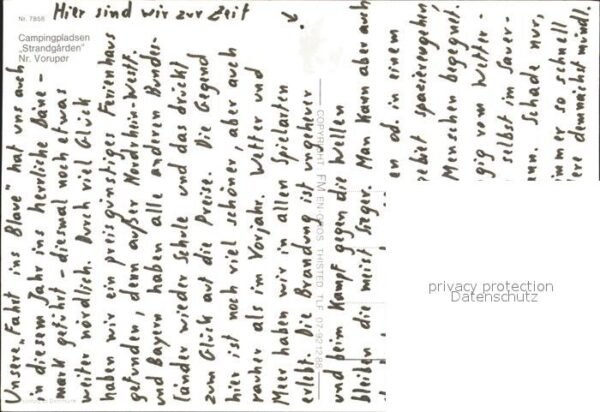 Nr. 7858
Campingpladsen
„Strandgården"
Nr. Vorupør
Hier sind wir zur Zeit
Unsere „Fahrt ins Blaue" hat uns auch
in diesem Jahr ins herrliche Däne-
mark geführt - diesmal noch etwas
weiter nördlich. Durch viel Glück
haben wir ein preisgünstiges Ferienhaus
gefunden, denn außer Nordrhein-Westf.
und Bayern haben alle anderen Bundes-
länder wieder Schule und das drückt
zum Glück auf die Preise. Die Gegend
hier ist noch viel schöner, aber auch
rauher als im Vorjahr. Wetter und
Meer haben wir in allen Spielarten
erlebt. Die Brandung ist ungeheuer
und beim Kampf gegen die Wellen
bleiben die meist Sieger. Man kann aber auch
en od. in einem
gebiet spazierengehen
Menschen begegnet.
gig vom Wetter-
selbst im Sauer-
ann. Schade nur,
immer so schnell
ere demnächst mündl.
COPYRIGHT FM EN-GROS THISTED TLF. 07-921288
privacy protection
Datenschutz